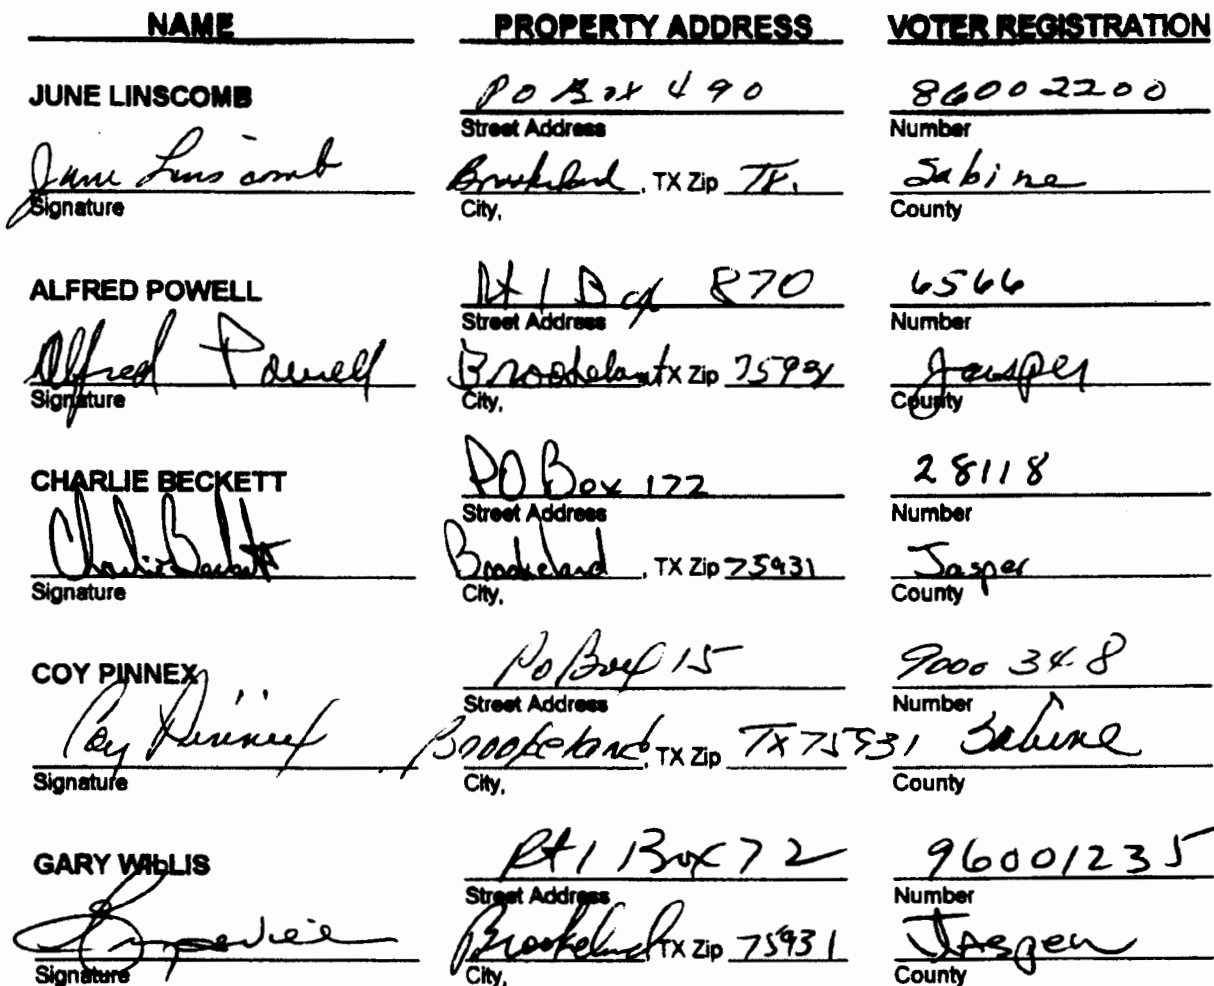 NAME PROPERTY ADDRESS VOTER REGISTRATION
JUNE LINSCOMB PO Box 490 86002200
Street Address Number
June Linscomb Brookeland, TX Zip TX. Sabine
Signature City, County
ALFRED POWELL Rt 1 Box 870 6566
Street Address Number
Alfred Powell Brookeland TX Zip 75931 Jasper
Signature City, County
CHARLIE BECKETT PO Box 172 28118
Street Address Number
Charlie Beckett Brookeland, TX Zip 75931 Jasper
Signature City, County
COY PINNEX Po Box 15 9000348
Street Address Number
Coy Pinnex Brookeland, TX Zip TX 75931 Sabine
Signature City, County
GARY WILLIS Rt 1 Box 72 96001235
Street Address Number
Brookeland TX Zip 75931 Jasper
Signature City, County